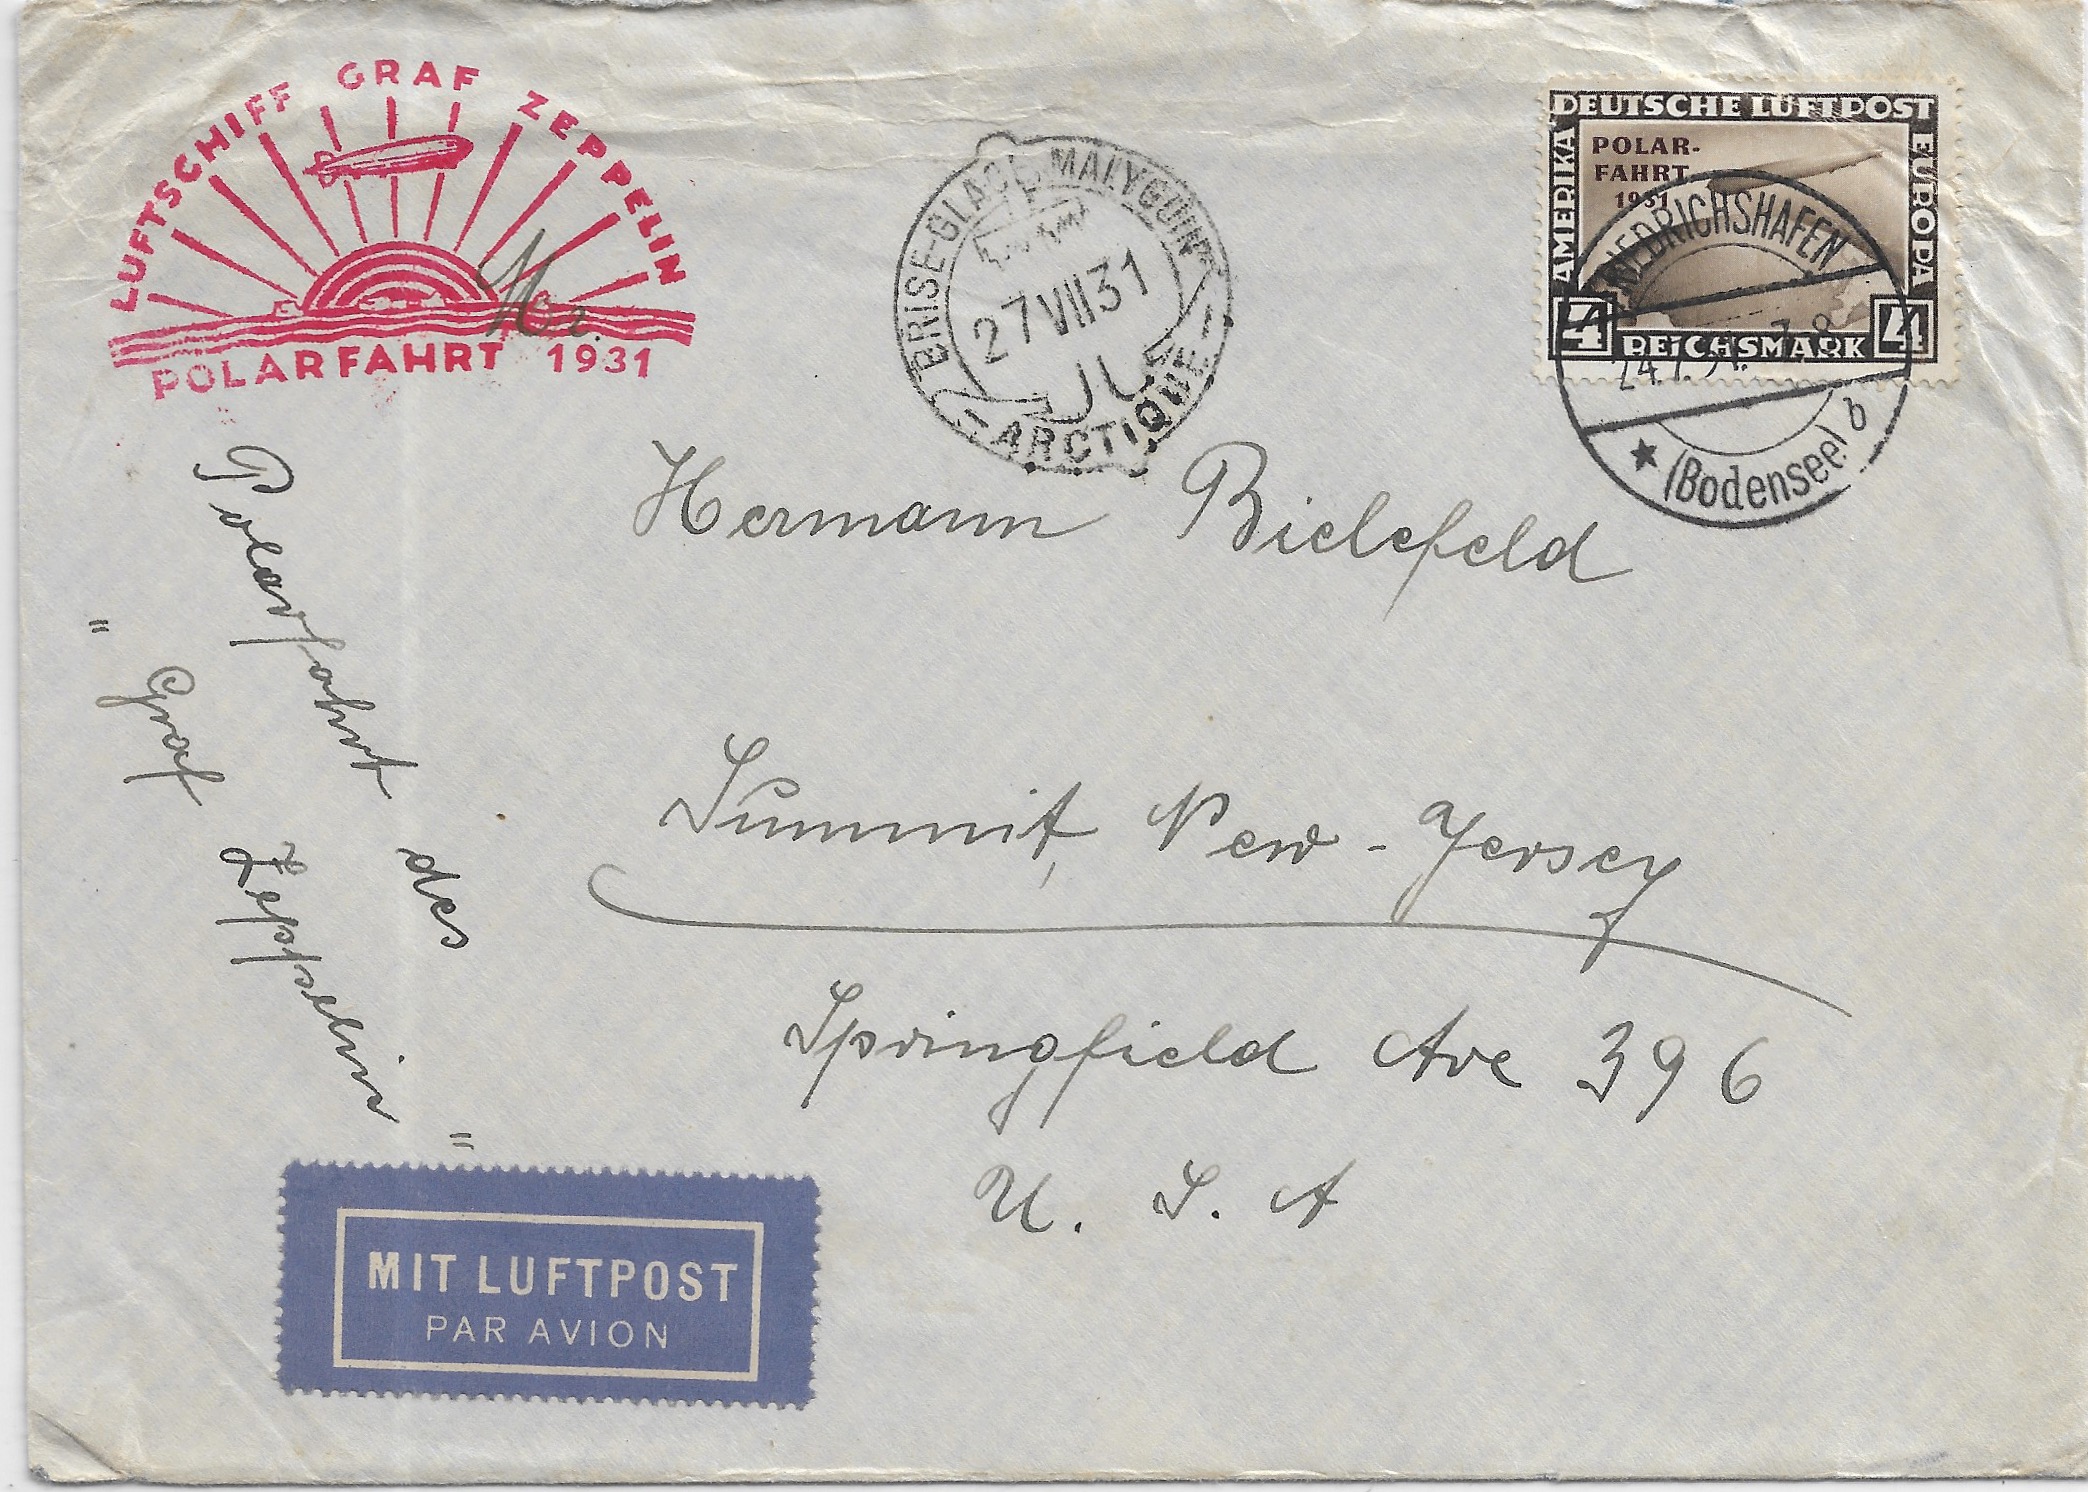 LUFTSCHIFF GRAF ZEPPELIN
POLARFAHRT 1931
BRISE-GLACE MALYGUIN
27 VII 31
ARCTIQUE
DEUTSCHE LUFTPOST
AMERIKA
EUROPA
POLAR-
FAHRT
1931
4 REICHSMARK 4
FRIEDRICHSHAFEN
(Bodensee) b
Hermann Bielefeld
Summit, New-Jersey
Springfield Ave 396
U. S. A
Polarfahrt des
" Graf Zeppelin "
MIT LUFTPOST
PAR AVION